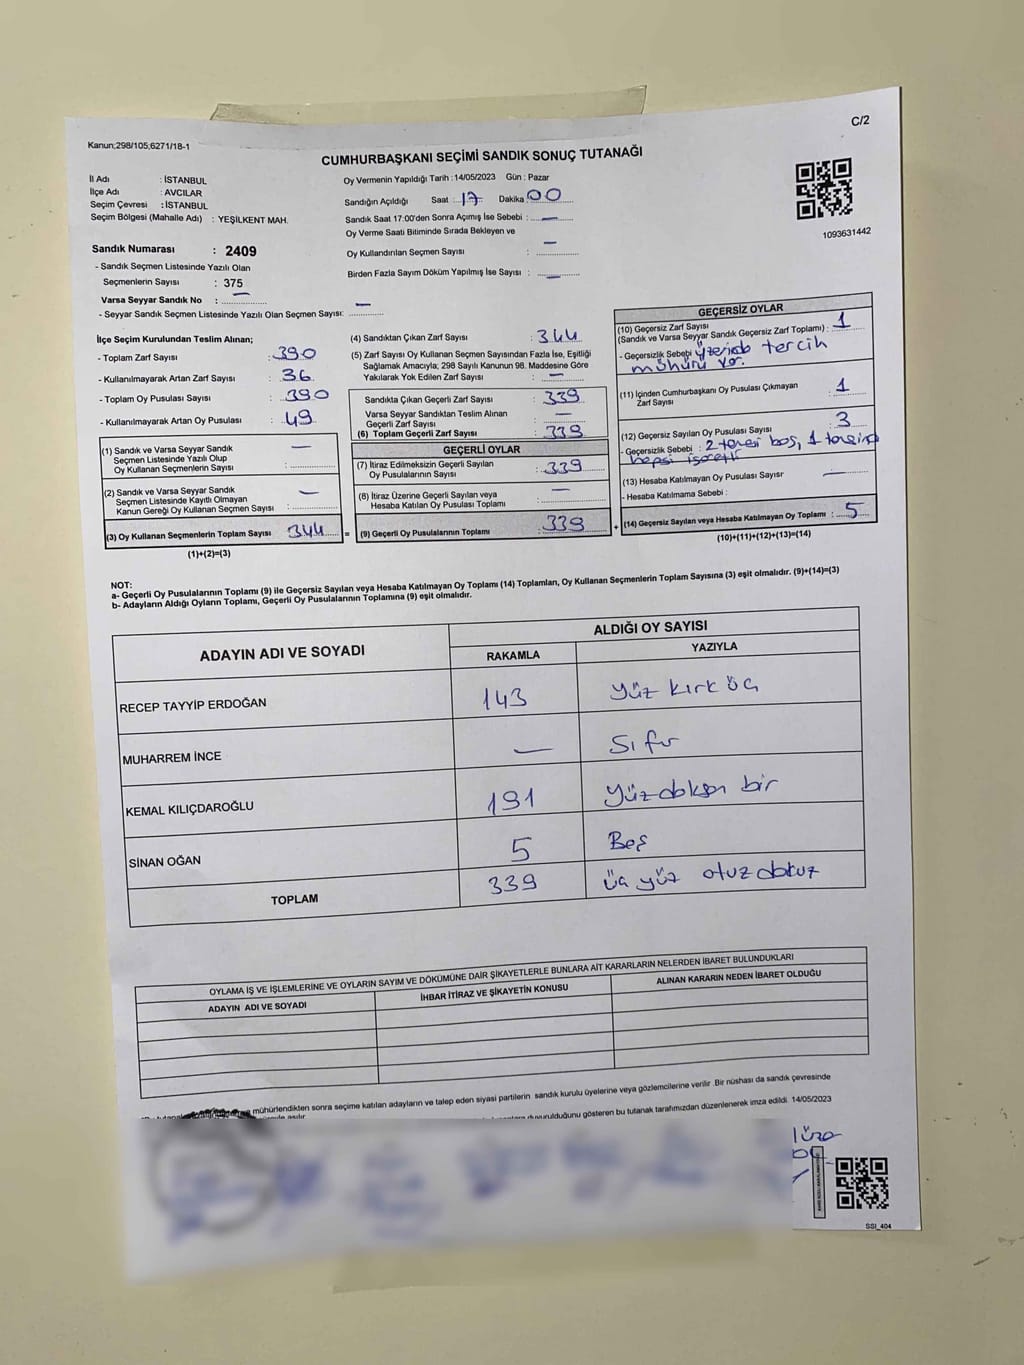 C/2
Kanun;298/105;6271/18-1
CUMHURBAŞKANI SEÇİMİ SANDIK SONUÇ TUTANAĞI
İl Adı : İSTANBUL
İlçe Adı : AVCILAR
Seçim Çevresi : İSTANBUL
Seçim Bölgesi (Mahalle Adı) : YEŞİLKENT MAH.
Oy Vermenin Yapıldığı Tarih : 14/05/2023 Gün : Pazar
Sandığın Açıldığı Saat : 17 Dakika 00
Sandık Saat 17:00'den Sonra Açımış İse Sebebi : —
Oy Verme Saati Bitiminde Sırada Bekleyen ve
Oy Kullandırılan Seçmen Sayısı : —
Birden Fazla Sayım Döküm Yapılmış İse Sayısı : —
1093631442
Sandık Numarası : 2409
- Sandık Seçmen Listesinde Yazılı Olan
Seçmenlerin Sayısı : 375
Varsa Seyyar Sandık No : —
- Seyyar Sandık Seçmen Listesinde Yazılı Olan Seçmen Sayısı: —
İlçe Seçim Kurulundan Teslim Alınan;
- Toplam Zarf Sayısı : 390
- Kullanılmayarak Artan Zarf Sayısı : 36
- Toplam Oy Pusulası Sayısı : 390
- Kullanılmayarak Artan Oy Pusulası : 49
(1) Sandık ve Varsa Seyyar Sandık
Seçmen Listesinde Yazılı Olup
Oy Kullanan Seçmenlerin Sayısı : —
(2) Sandık ve Varsa Seyyar Sandık
Seçmen Listesinde Kayıtlı Olmayan
Kanun Gereği Oy Kullanan Seçmen Sayısı : —
(3) Oy Kullanan Seçmenlerin Toplam Sayısı 344
(1)+(2)=(3)
(4) Sandıktan Çıkan Zarf Sayısı : 344
(5) Zarf Sayısı Oy Kullanan Seçmen Sayısından Fazla İse, Eşitliği
Sağlamak Amacıyla; 298 Sayılı Kanunun 98. Maddesine Göre
Yakılarak Yok Edilen Zarf Sayısı : —
Sandıkta Çıkan Geçerli Zarf Sayısı : 339
Varsa Seyyar Sandıktan Teslim Alınan
Geçerli Zarf Sayısı : —
(6) Toplam Geçerli Zarf Sayısı : 339
GEÇERLİ OYLAR
(7) İtiraz Edilmeksizin Geçerli Sayılan
Oy Pusulalarının Sayısı : 339
(8) İtiraz Üzerine Geçerli Sayılan veya
Hesaba Katılan Oy Pusulası Toplamı : —
= (9) Geçerli Oy Pusulalarının Toplamı : 339
GEÇERSİZ OYLAR
(10) Geçersiz Zarf Sayısı
(Sandık ve Varsa Seyyar Sandık Geçersiz Zarf Toplamı) : 1
- Geçersizlik Sebebi : üzerinde tercih
mührü var.
(11) İçinden Cumhurbaşkanı Oy Pusulası Çıkmayan
Zarf Sayısı : 1
(12) Geçersiz Sayılan Oy Pusulası Sayısı : 3
- Geçersizlik Sebebi : 2 tanesi boş, 1 tanesinde
hepsi işaretli
(13) Hesaba Katılmayan Oy Pusulası Sayısı —
- Hesaba Katılmama Sebebi :
+ (14) Geçersiz Sayılan veya Hesaba Katılmayan Oy Toplamı : 5
(10)+(11)+(12)+(13)=(14)
NOT:
a- Geçerli Oy Pusulalarının Toplamı (9) ile Geçersiz Sayılan veya Hesaba Katılmayan Oy Toplamı (14) Toplamları, Oy Kullanan Seçmenlerin Toplam Sayısına (3) eşit olmalıdır. (9)+(14)=(3)
b- Adayların Aldığı Oyların Toplamı, Geçerli Oy Pusulalarının Toplamına (9) eşit olmalıdır.
ADAYIN ADI VE SOYADI ALDIĞI OY SAYISI
RAKAMLA YAZIYLA
RECEP TAYYİP ERDOĞAN 143 Yüz kırk üç
MUHARREM İNCE — Sıfır
KEMAL KILIÇDAROĞLU 191 Yüzdoksan bir
SİNAN OĞAN 5 Beş
TOPLAM 339 üç yüz otuz dokuz
OYLAMA İŞ VE İŞLEMLERİNE VE OYLARIN SAYIM VE DÖKÜMÜNE DAİR ŞİKAYETLERLE BUNLARA AİT KARARLARIN NELERDEN İBARET BULUNDUKLARI
ADAYIN ADI VE SOYADI İHBAR İTİRAZ VE ŞİKAYETİN KONUSU ALINAN KARARIN NEDEN İBARET OLDUĞU
mühürlendikten sonra seçime katılan adayların ve talep eden siyasi partilerin sandık kurulu üyelerine veya gözlemcilerine verilir .Bir nüshası da sandık çevresinde
duyurulduğunu gösteren bu tutanak tarafımızdan düzenlenerek imza edildi. 14/05/2023
SSI_404